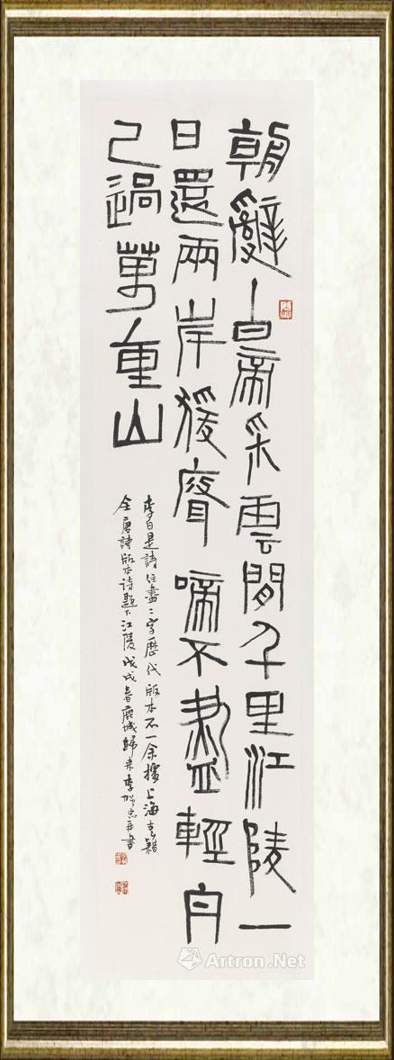 朝辭白帝采雲間千里江陵一
日還兩岸猨聲啼不盡輕舟
已過萬重山
李白是詩住盡二字歷代版本不一余據上海古籍
全唐詩版本诗題下江陵戊戌春鹿城歸来李書
Artron.Net